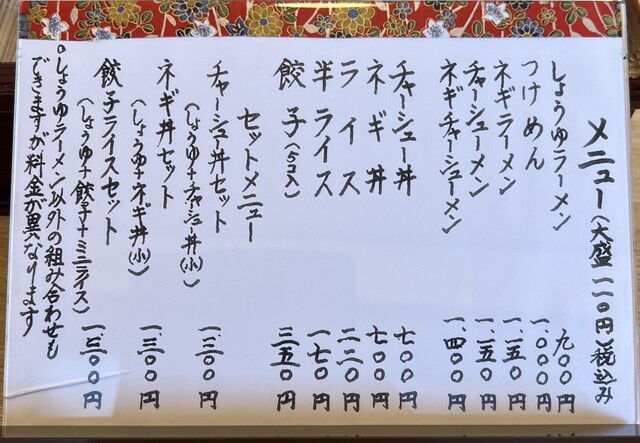 メニュー(大盛一一〇円)税込み
しょうゆラーメン 九〇〇円
つけめん 一、〇〇〇円
ネギラーメン 一、一五〇円
チャーシューメン 一、二五〇円
ネギチャーシューメン 一、四〇〇円
チャーシュー丼 七〇〇円
ネギ丼 七〇〇円
ライス 二二〇円
半ライス 一七〇円
餃子(5コ入) 三五〇円
セットメニュー
チャーシュー丼セット 一、三〇〇円
(しょうゆ+チャーシュー丼(小))
ネギ丼セット 一、三〇〇円
(しょうゆ+ネギ丼(小))
餃子ライスセット 一、三〇〇円
(しょうゆ+餃子+ミニライス)
。しょうゆラーメン以外の組み合わせも
できますが料金が異なります